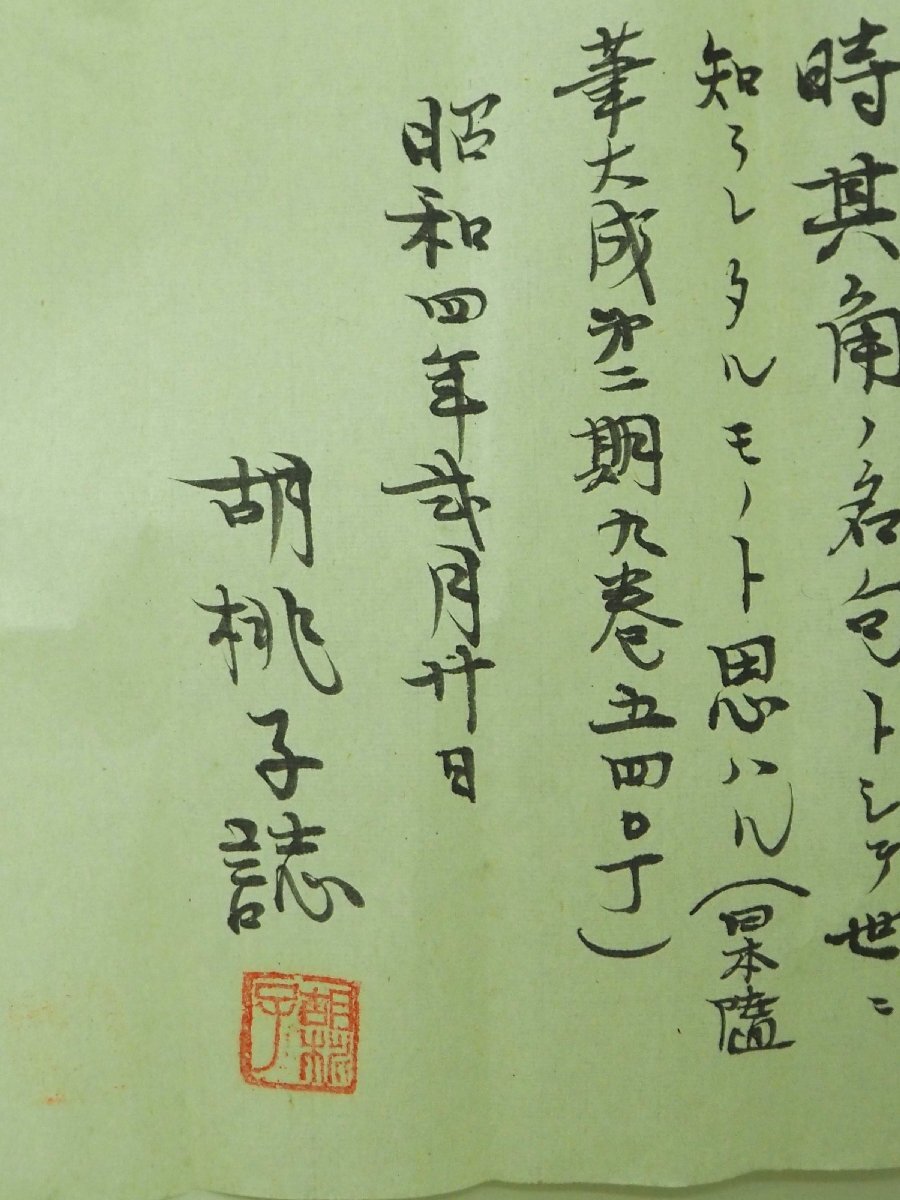 時其角ノ名句トシテ世ニ
知ラレタルモノト思ハル(日本隨
筆大成第二期九巻五四〇丁)
昭和四年弐月廿日
胡桃子誌
胡桃子